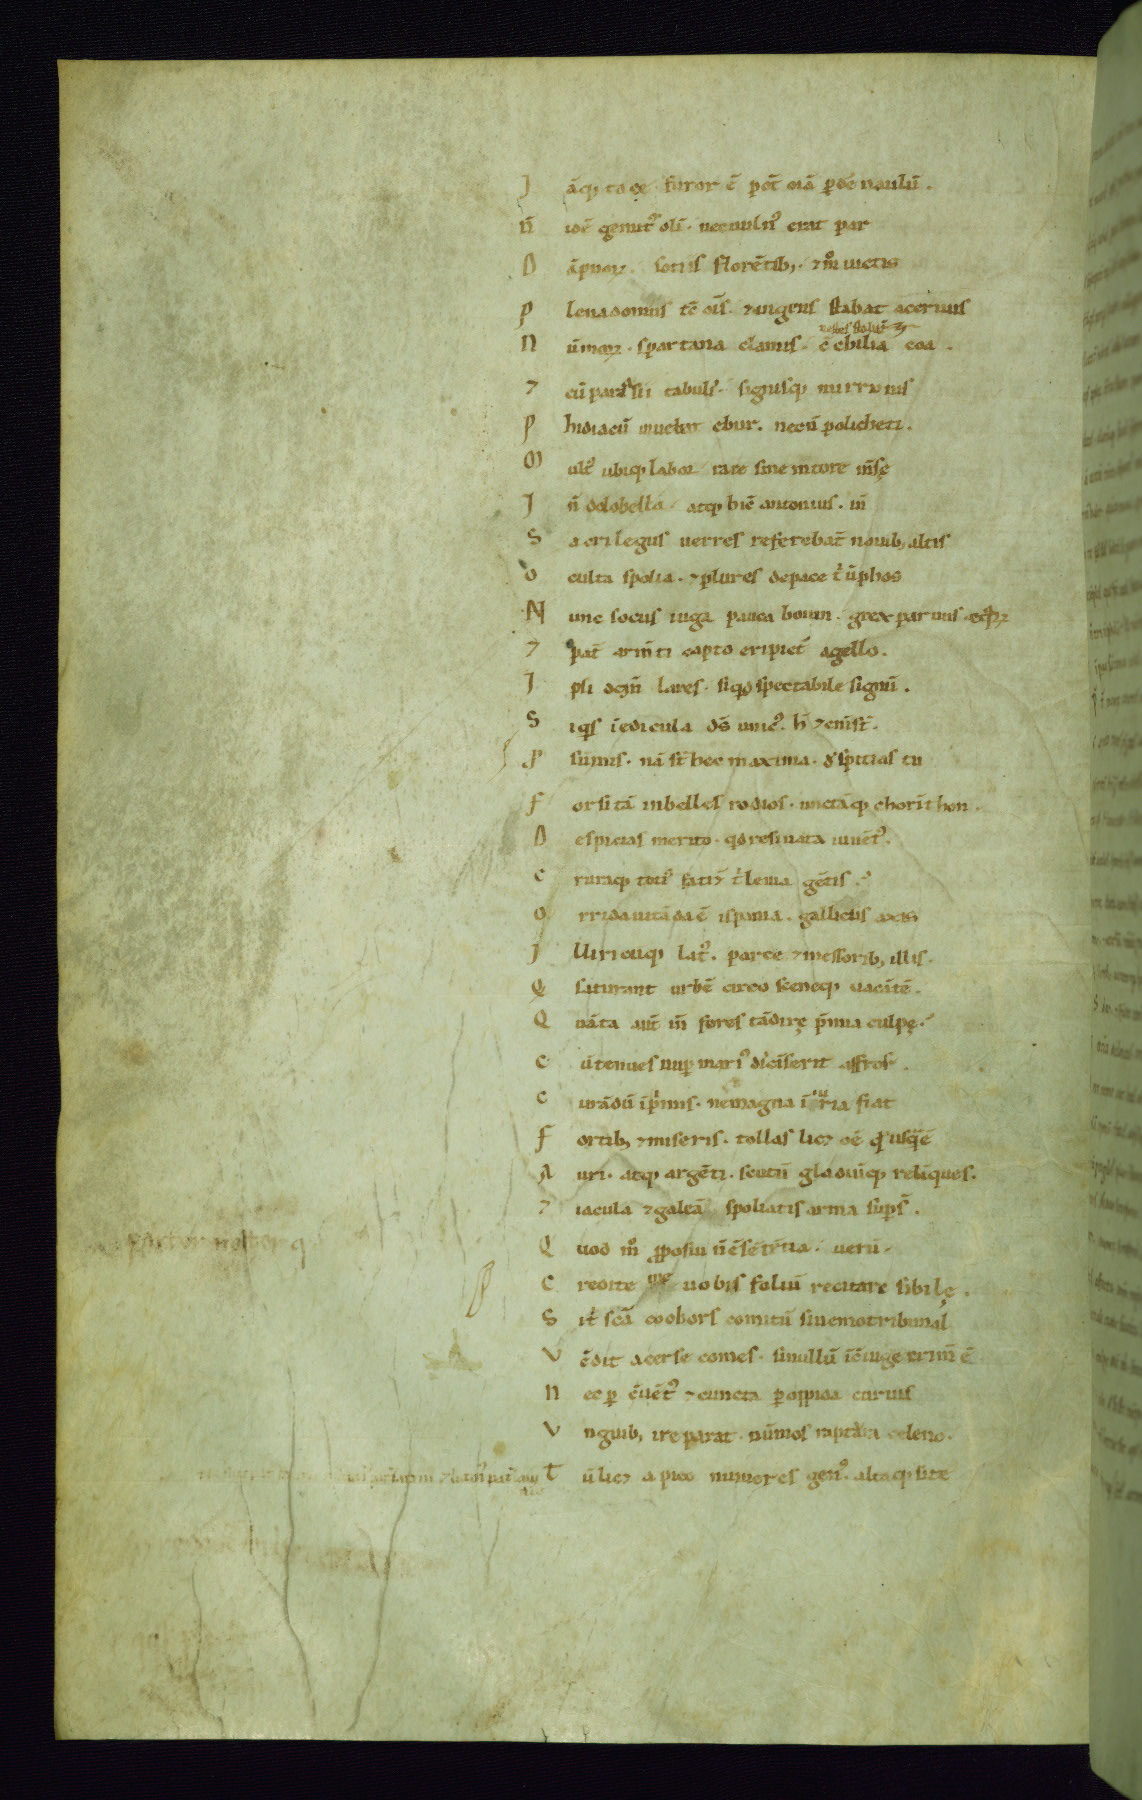 J āq; tace furor ē pꝰt oīa ꝑdē naulū .
N̄ idē gemitꝰ oli . nec uulnꝰ erat par
D āpnoꝝ . sotiis florētib; . ⁊ mͦ uictis
P lena domus tc̄ oīs . ⁊ ingens stabat aceruus
N ūmoꝝ . spartana clamis . cēhilia coa .
⁊ cū parrasii tabulis . signisq; mirronis
P hidiacū uiuebat ebur . necū policheti .
M ultꝰ ubiq; labor rare sine mtore mēsę
J n̄ dolobella . atq; hic̄ antonius . in̄
S acrilegus uerres referebat̄ nauib; altis
O cculta spolia . ⁊ plures de pace tⁱūphos
N unc sociis iuga pauca boum . grex paruus eqͣꝝ
⁊ pat̄ armti capto eripiet̄ agello .
J psi deīn lares . siqd spectabile signū .
S iqͥs ī edicula ds̄ unicꝰ . h̄ ⁊enī st̄ .
P sūmis . nā st̄ hec maxima . dͤspicias tu
F orsitā inbelles rodios . unctāq; chorīthon .
D espicias merito . qd resinata iuuētꝰ .
C ruraq; totiꝰ fatiꝫ tͥ leuia gētis .
O rrida uitāda ē ispania . gallicus axis
J lliricuq; latꝰ . parce ⁊ messorib; illis .
Q saturant urbē circo sceneq; uacātē .
Q uāta aut̄ in̄ feres tādirę p̄mia culpę .
C ū tenues nuꝑ mariꝰ discīserit affros .
C urādū īpͥmis . ne magna īiuria fiat
F ortib; ⁊ miseris . tollas licꝫ oē qͩ usqͣ ē
A uri . atq; argēti . scutū gladiūq; relīques .
⁊ iacula ⁊ galeā spoliatis arma suꝑs̄ .
Q uod mͦ ꝓposui n̄ ē sētētia . uerū .
C redite me uobis foliū recitare sibilę .
S it̄ scā coohors comitū si nemo tribunal
V ēdit acerse comes . si nullū ī cōiuge crimē ē
N ec ꝑ cūētꝰ ⁊ cuncta ꝑ oppida curuis
V nguib; ire parat . nūmos raptara celeno .
T ū licꝫ a pico numeres genꝰ . altaq; si te